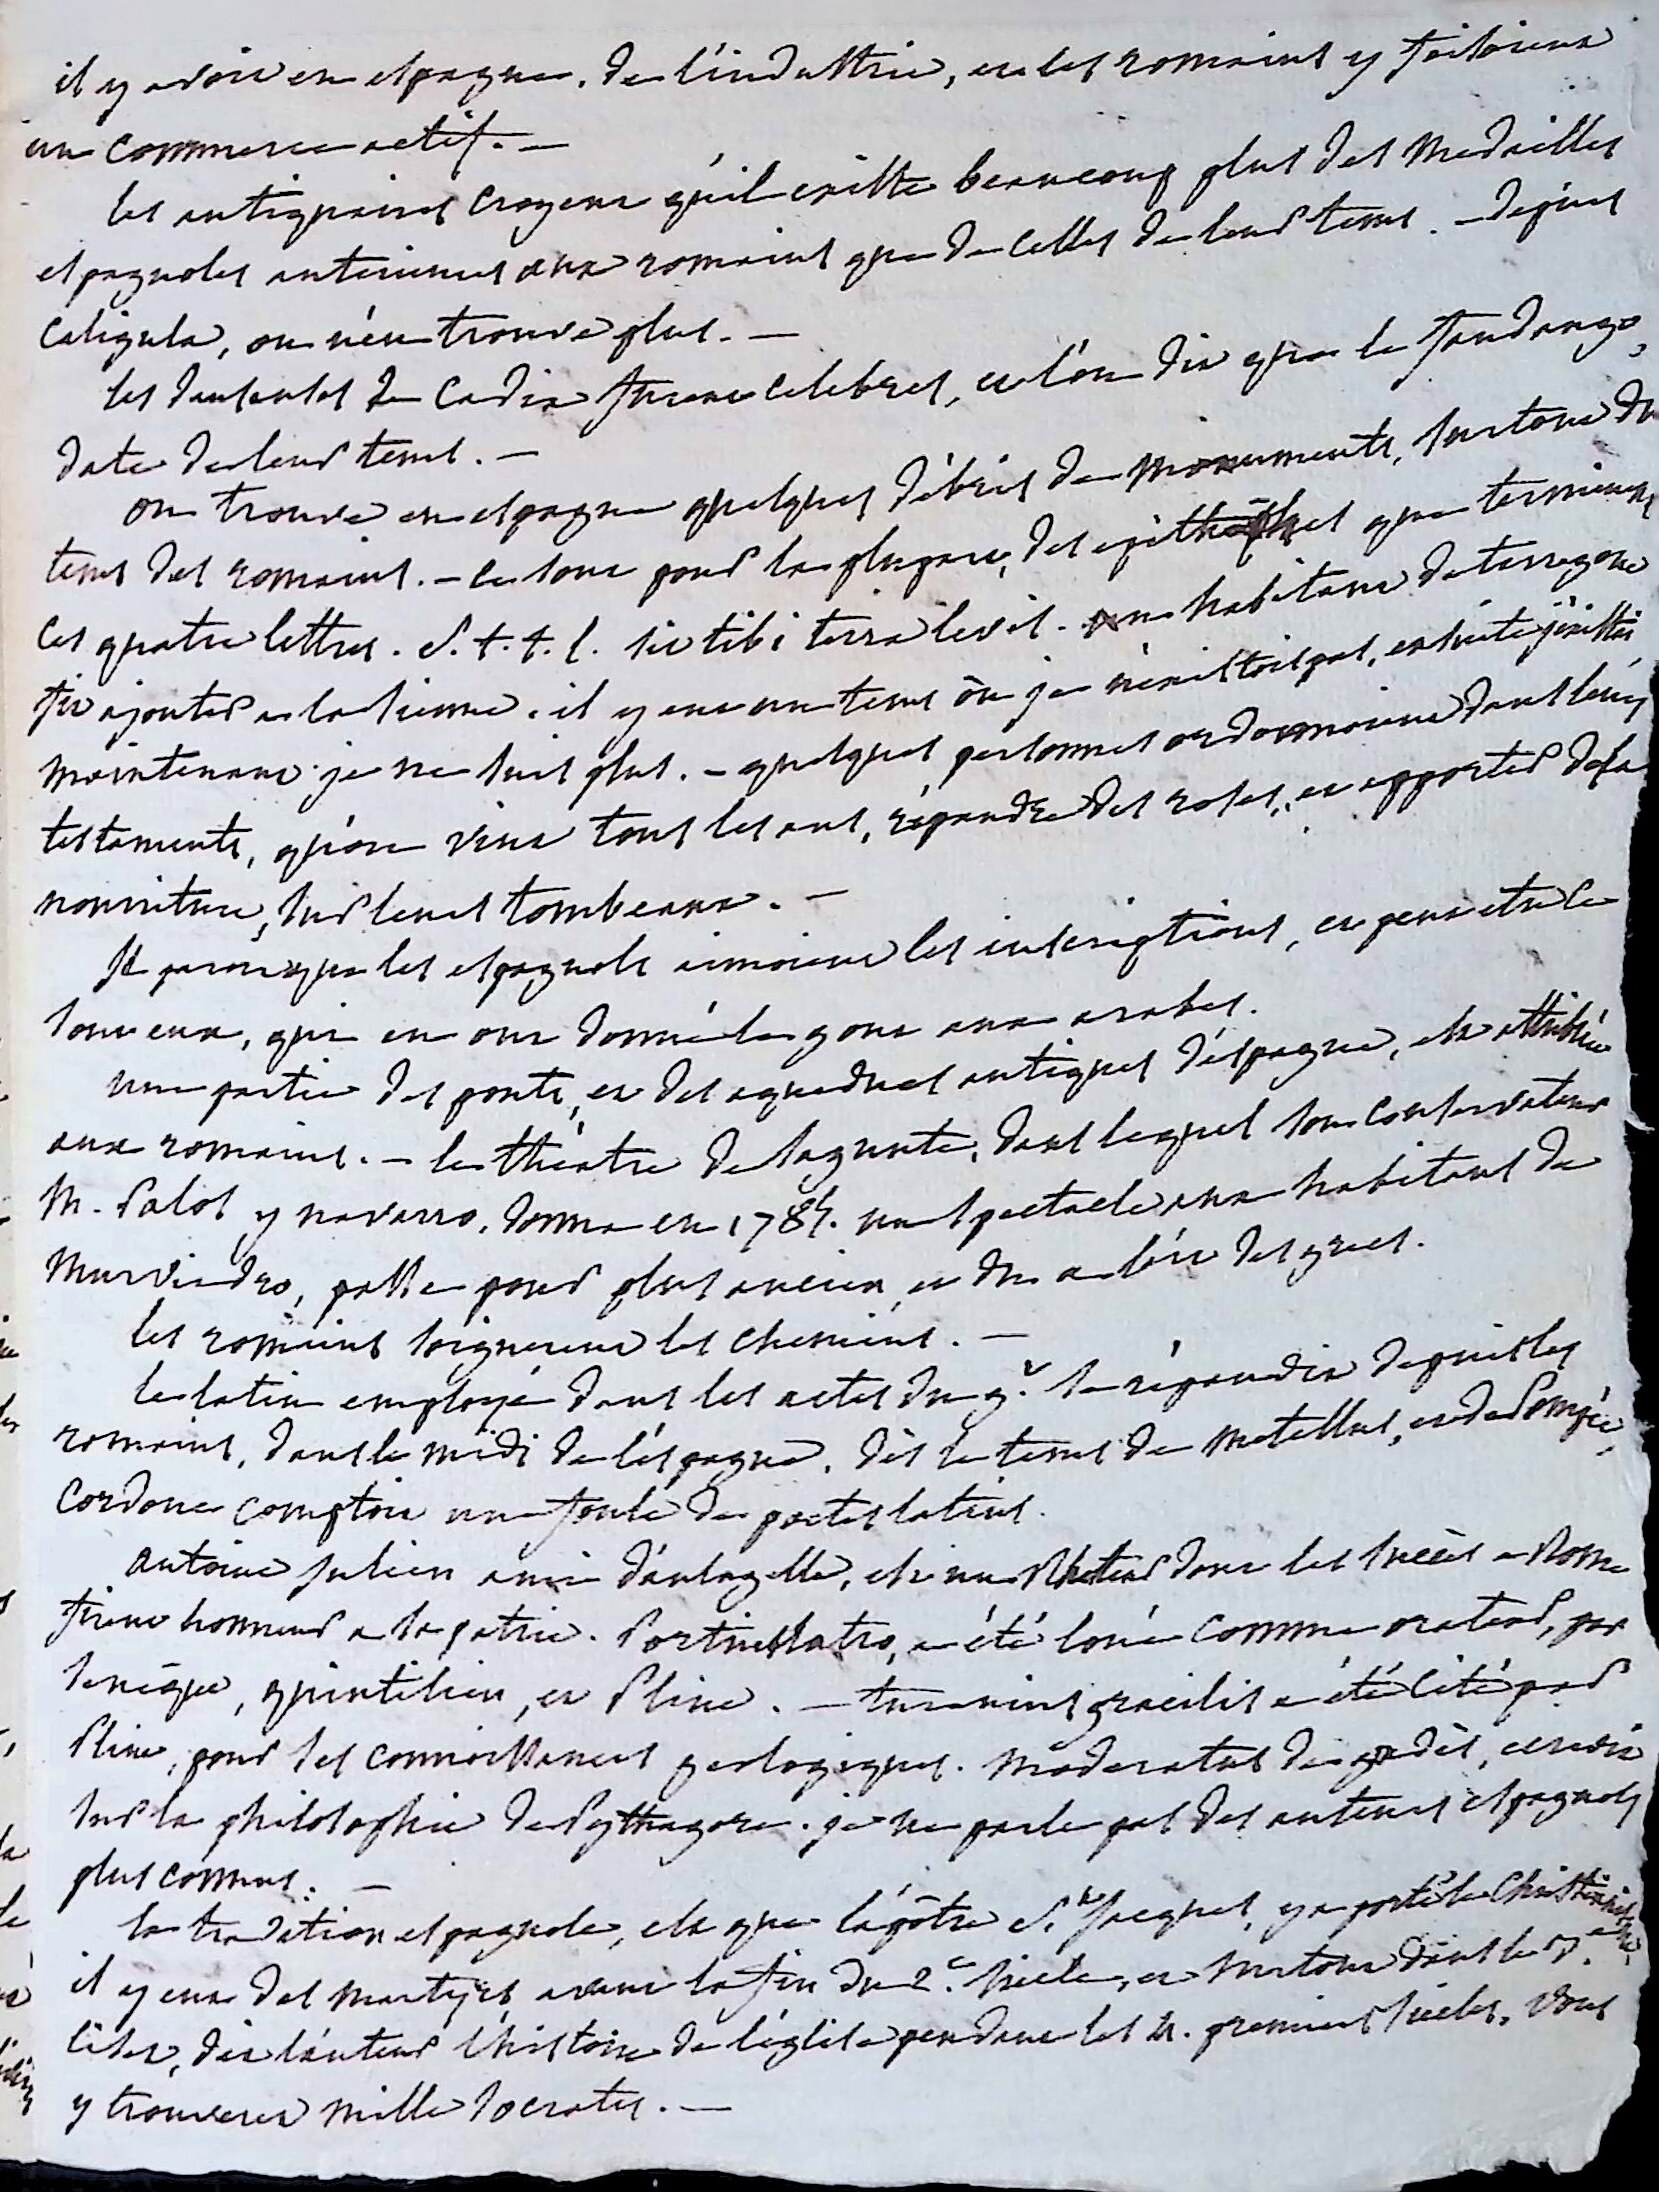 il y avoit en espagne, de l'industrie, et les romains y faisoient
un commerce actif. —
les antiquaires croyent qu'il existe beaucoup plus des medailles
espagnoles anterieures aux romains que de celles de leur tems. — depuis
Caligula, on n'en trouve plus. —
les danseuses de Cadix furent celebres, et l'on dit que le fandango,
date de leur tems. —
on trouve en espagne quelques débris de monuments, surtout du
tems des romains. — ce sont pour la plupart, des epitaphes que terminent
ces quatre lettres. S. t. t. l. sit tibi terra levis. un habitant de terragone
fit ajouter a la sienne. il y eut un tems où je n'existois pas, ensuite j'existai
maintenant je ne suis plus. — quelques personnes ordonnoient dans leurs
testaments, qu'on vint tous les ans, répandre des roses, et apporter de la
nourriture, sur leurs tombeaux. —
Il paroit que les espagnols aimoient les inscriptions, et peut etre ce
sont eux, qui en ont donné le gout aux arabes.
une partie des ponts, et des aqueducs antiques d'espagne, est attribuée
aux romains. — le théatre de Sagunte, dans lequel son conservateur
M. Palos y navarro, donna en 1785. un spectacle aux habitans de
Murviedro, passe pour plus ancien, et du a l'ére des grecs.
les romains soignerent les chemins. —
le latin employé dans les actes du g.t se répandit depuis les
romains, dans le midi de l'espagne, dès le tems de Metellus, et de Pompée,
Cordoue comptoit une foule de poetes latins.
antoine Julien ami d'aulugelle, est un Rheteur dont les succès a Rome
firent honneur a sa patrie. Portius latro, a été loué comme orateur, par
seneque, quintilien, et Pline. — turanius gracilis a été cité par
Pline, pour ses connoissances geologiques. Moderatus de gadès, ecrivit
sur la philosophie de Pythagore. je ne parle pas des auteurs espagnols
plus connus. —
la tradition espagnole, est que l'apôtre S. Jacques, y a porté le Christianisme
il y eut des martyrs, avant la fin du 2.e siecle, et surtout dans le 3.e
lisez, dit l'auteur l'histoire de l'église pendant les premiers siecles, vous
y trouverez mille Socrates. —